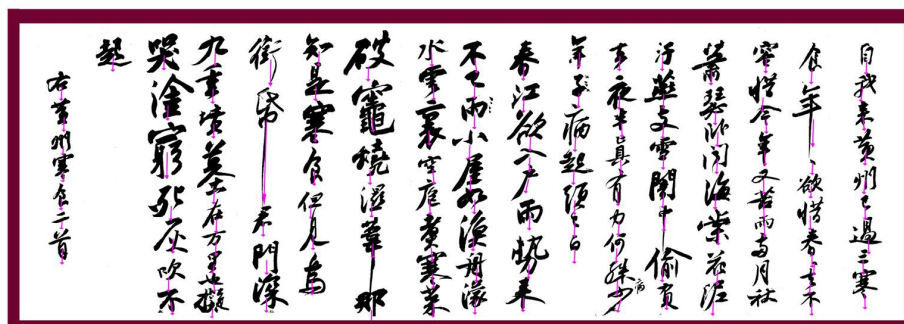 自我來黃州已過三寒
食年〻欲惜春〻去不
容惜今年又苦雨兩月秋
蕭瑟臥聞海棠花泥
汙燕支雪闇中偷負
去夜半真有力何殊少病
年子病起頭已白
春江欲入戶雨勢來
不已雨小屋如漁舟濛〻
水雲裏空庖煮寒菜
破竈燒濕葦那
知是寒食但見烏
銜帋君門深
九重墳墓在万里也擬
哭塗窮死灰吹不
起
右黃州寒食二首